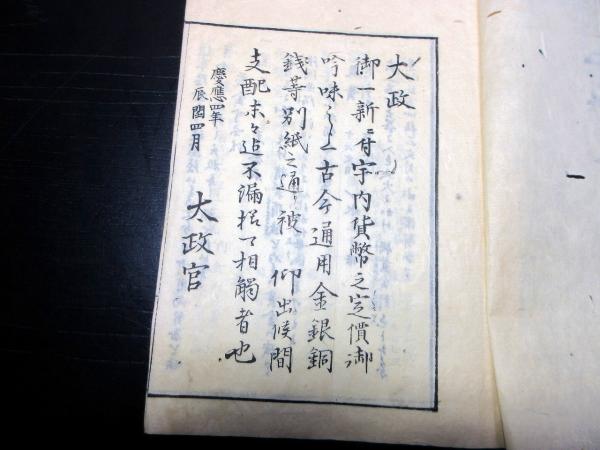 大政
御一新ニ付宇内貨幣之定價御
吟味之上古今通用金銀銅
錢等別紙之通被 仰出候間
支配末々迄不漏様可相觸者也
慶應四年
辰閏四月
太政官